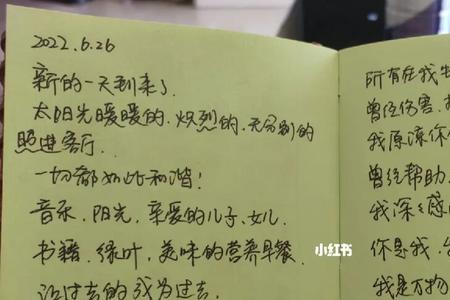 2022.6.26
新的一天到来了
太阳光暖暖的、炽烈的、无分别的
照进客厅.
一切都如此和谐!
音乐、阳光、亲爱的儿子、女儿、
书籍、绿叶、美味的营养早餐、
让过去的成为过去.
所有在我生
曾经伤害、
我原谅你
曾经帮助、
我深深感
你是我、
我是万物
小红书